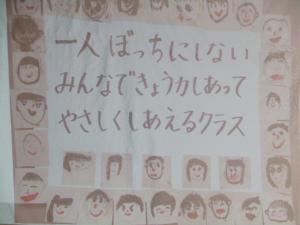 一人ぼっちにしない
みんなできょう力しあって
やさしくしあえるクラス